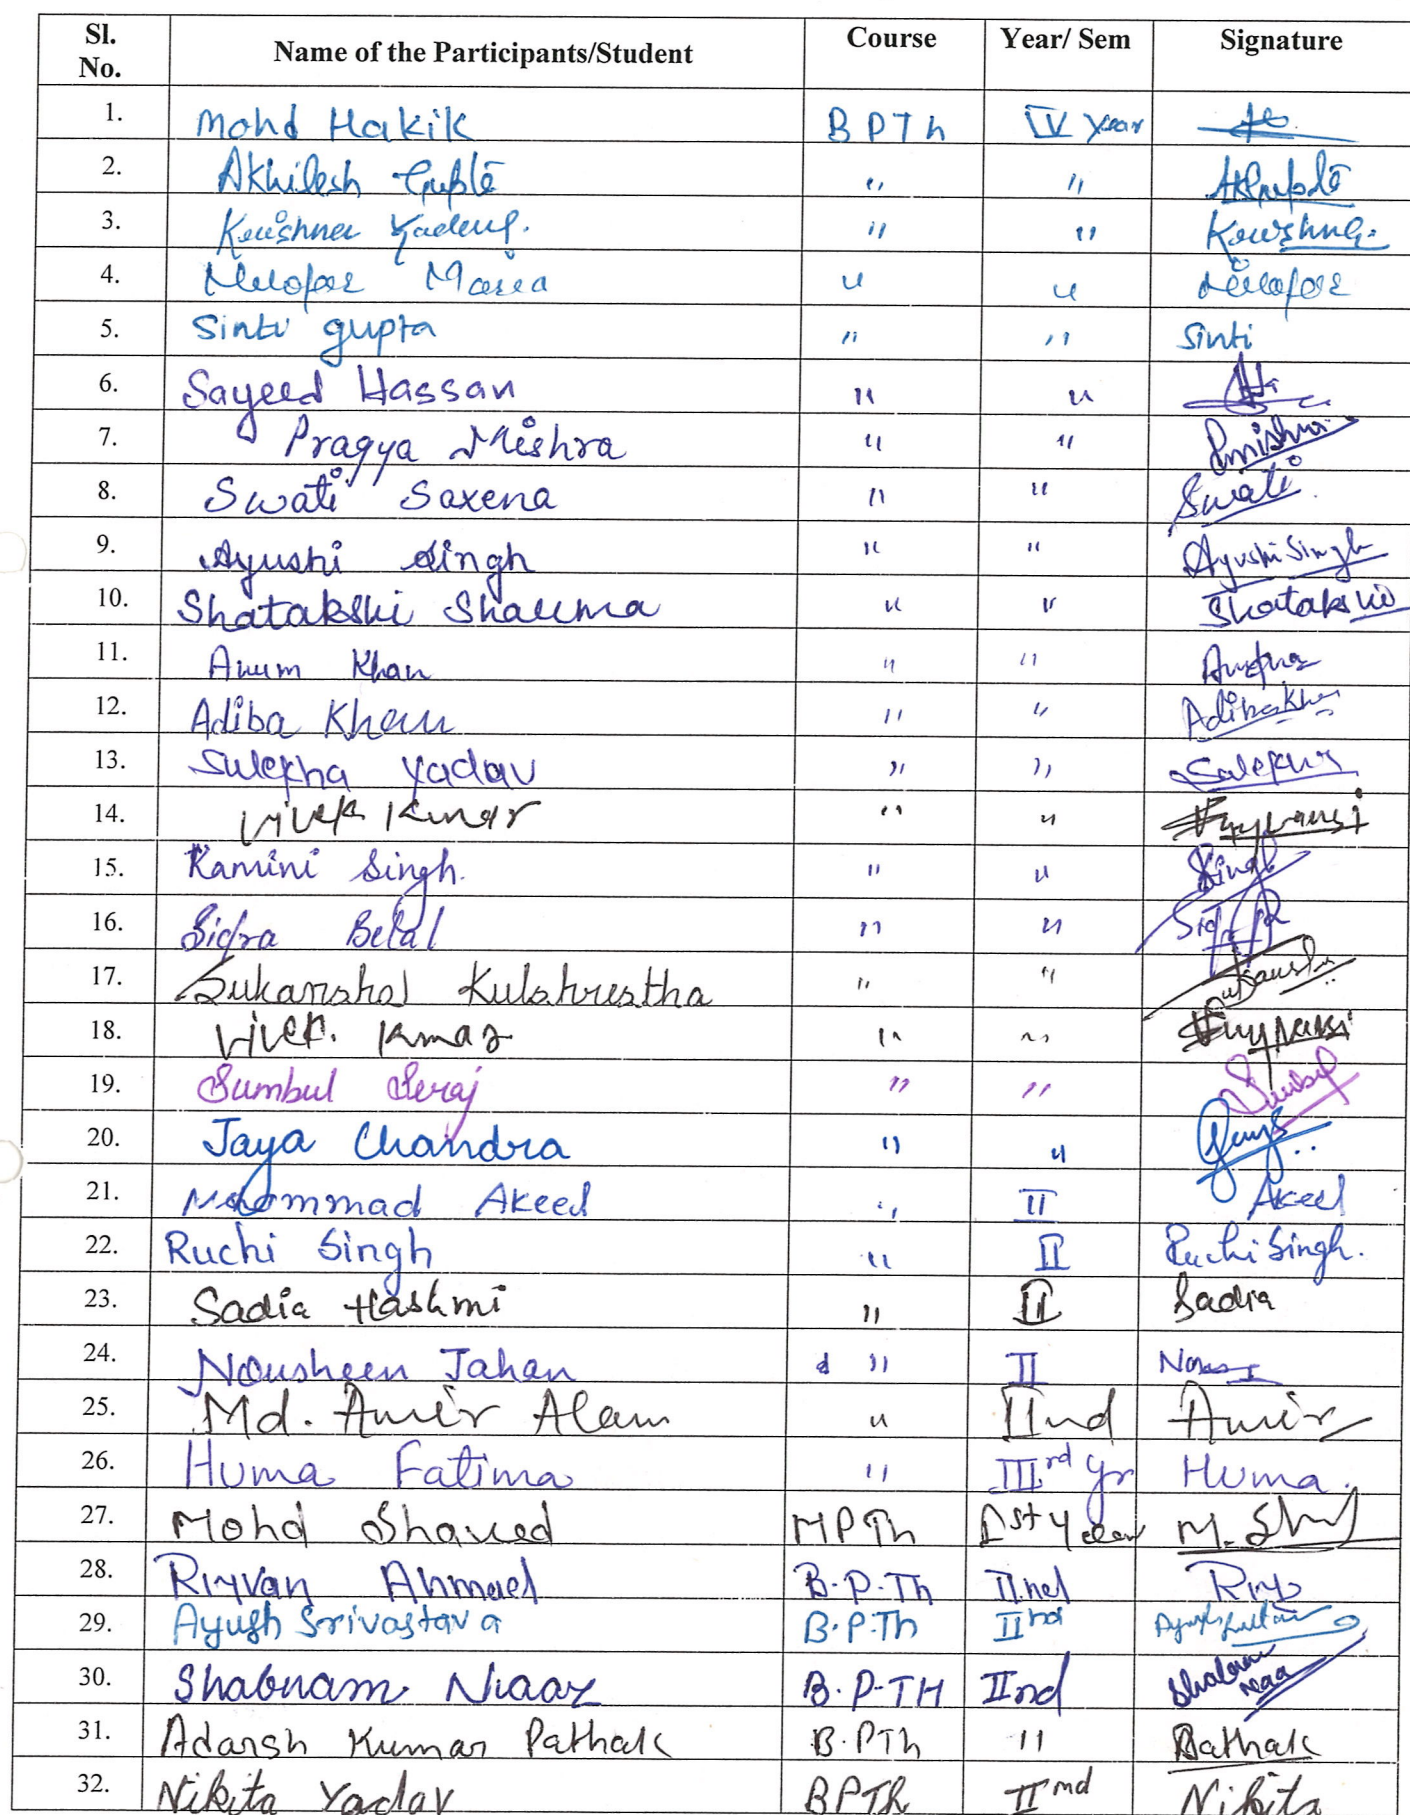 Sl. No. Name of the Participants/Student Course Year/ Sem Signature
1. Mohd Hakik BPTh IV Year
2. Akhilesh Gupta " " AKGupta
3. Yadav " "
4. Nilofar " " Nilofar
5. Sinti gupta " " Sinti
6. Sayeed Hassan " "
7. Pragya Mishra " " Pmishra
8. Swati Saxena " " Swati
9. Ayushi Singh " " Ayushi Singh
10. Shatakshi Sharma " " Shatakshi
11. Anum Khan " "
12. Adiba Khan " " Adiba Khan
13. Sulekha Yadav " "
14. Vivek Kumar " "
15. Kamini Singh. " " Singh
16. Sidra Belal " "
17. Kulshrestha " "
18. Vivek. Kumar " "
19. Sumbul Seraj " " Sumbul
20. Jaya Chandra " " Jaya
21. Akeel " II Akeel
22. Ruchi Singh " II Ruchi Singh.
23. Sadia Hashmi " II Sadia
24. Nousheen Jahan " II
25. Md. Amir Alam " IInd Amir
26. Huma Fatima " III rd yr Huma.
27. Mohd Shaved MPTh Ist year
28. Rizvan Ahmad B.P.Th IInd Riz
29. Ayush Srivastava B.P.Th IInd
30. Shabnam Niaaz B.P-TH IInd
31. Adarsh Kumar Pathak B.PTh " Pathak
32. Nikita Yadav BPTh IInd Nikita